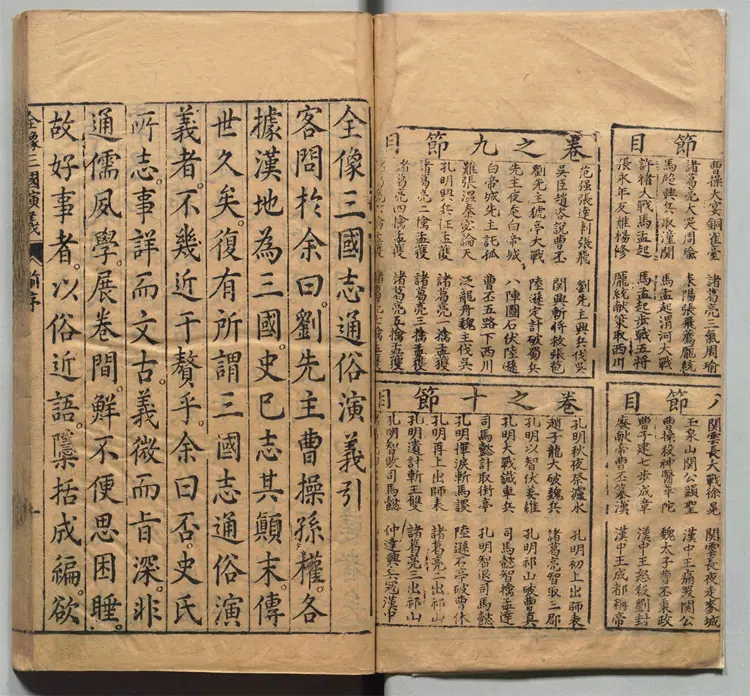 節目
曹操大宴銅雀臺 諸葛亮三氣周瑜
諸葛亮大哭周瑜 耒陽張飛薦龐統
馬超興兵取潼関 馬孟起渭河大戰
許褚大戰馬孟起 馬孟起步戰五將
張永年反難楊修 龐統献策取西川
卷之九節目
范强張達刺張飛 劉先主興兵伐吳
吳臣趙咨說曹丕 関興斬將救張苞
劉先主猇亭大戰 陸遜定計破蜀兵
先主夜走白帝城 八陣圖石伏陸遜
白帝城先主託孤 曹丕五路下西川
難張温秦宓論天 泛龍舟魏主伐吳
孔明興兵征孟獲 諸葛亮一擒孟獲
諸葛亮二擒孟獲 諸葛亮三擒孟獲
諸葛亮四擒孟獲 諸葛亮五擒孟獲
八節目
関雲長大戰徐晃 関雲長夜走麥城
玉泉山関公顯聖 漢中王痛哭関公
曹操殺神醫華佗 魏太子曹丕秉政
曹子建七步成章 漢中王怒殺劉封
廢献帝曹丕篡漢 漢中王成都稱帝
卷之十節目
孔明秋夜祭瀘水 孔明初上出師表
趙子龍大破魏兵 諸葛亮智取三郡
孔明以智伏姜維 孔明祁山破曹真
孔明大戰鐵車兵 司馬懿智擒孟達
司馬懿計取街亭 孔明智退司馬懿
孔明揮淚斬馬謖 陸遜石亭破曹休
孔明再上出師表 諸葛亮二出祁山
孔明遺計斬王雙 諸葛亮三出祁山
孔明智敗司馬懿 仲達興兵冠漢中
全像三國志通俗演義引
客問於余曰。劉先主曹操孫權。各
據漢地為三國。史已志其顛末。傳
世久矣。復有所謂三國志通俗演
義者。不幾近于贅乎。余曰。否。史氏
所志。事詳而文古。義微而旨深。非
通儒夙學。展卷間。鮮不便思困睡。
故好事者。以俗近語。檃括成編。欲
全像三國演義 前序 一